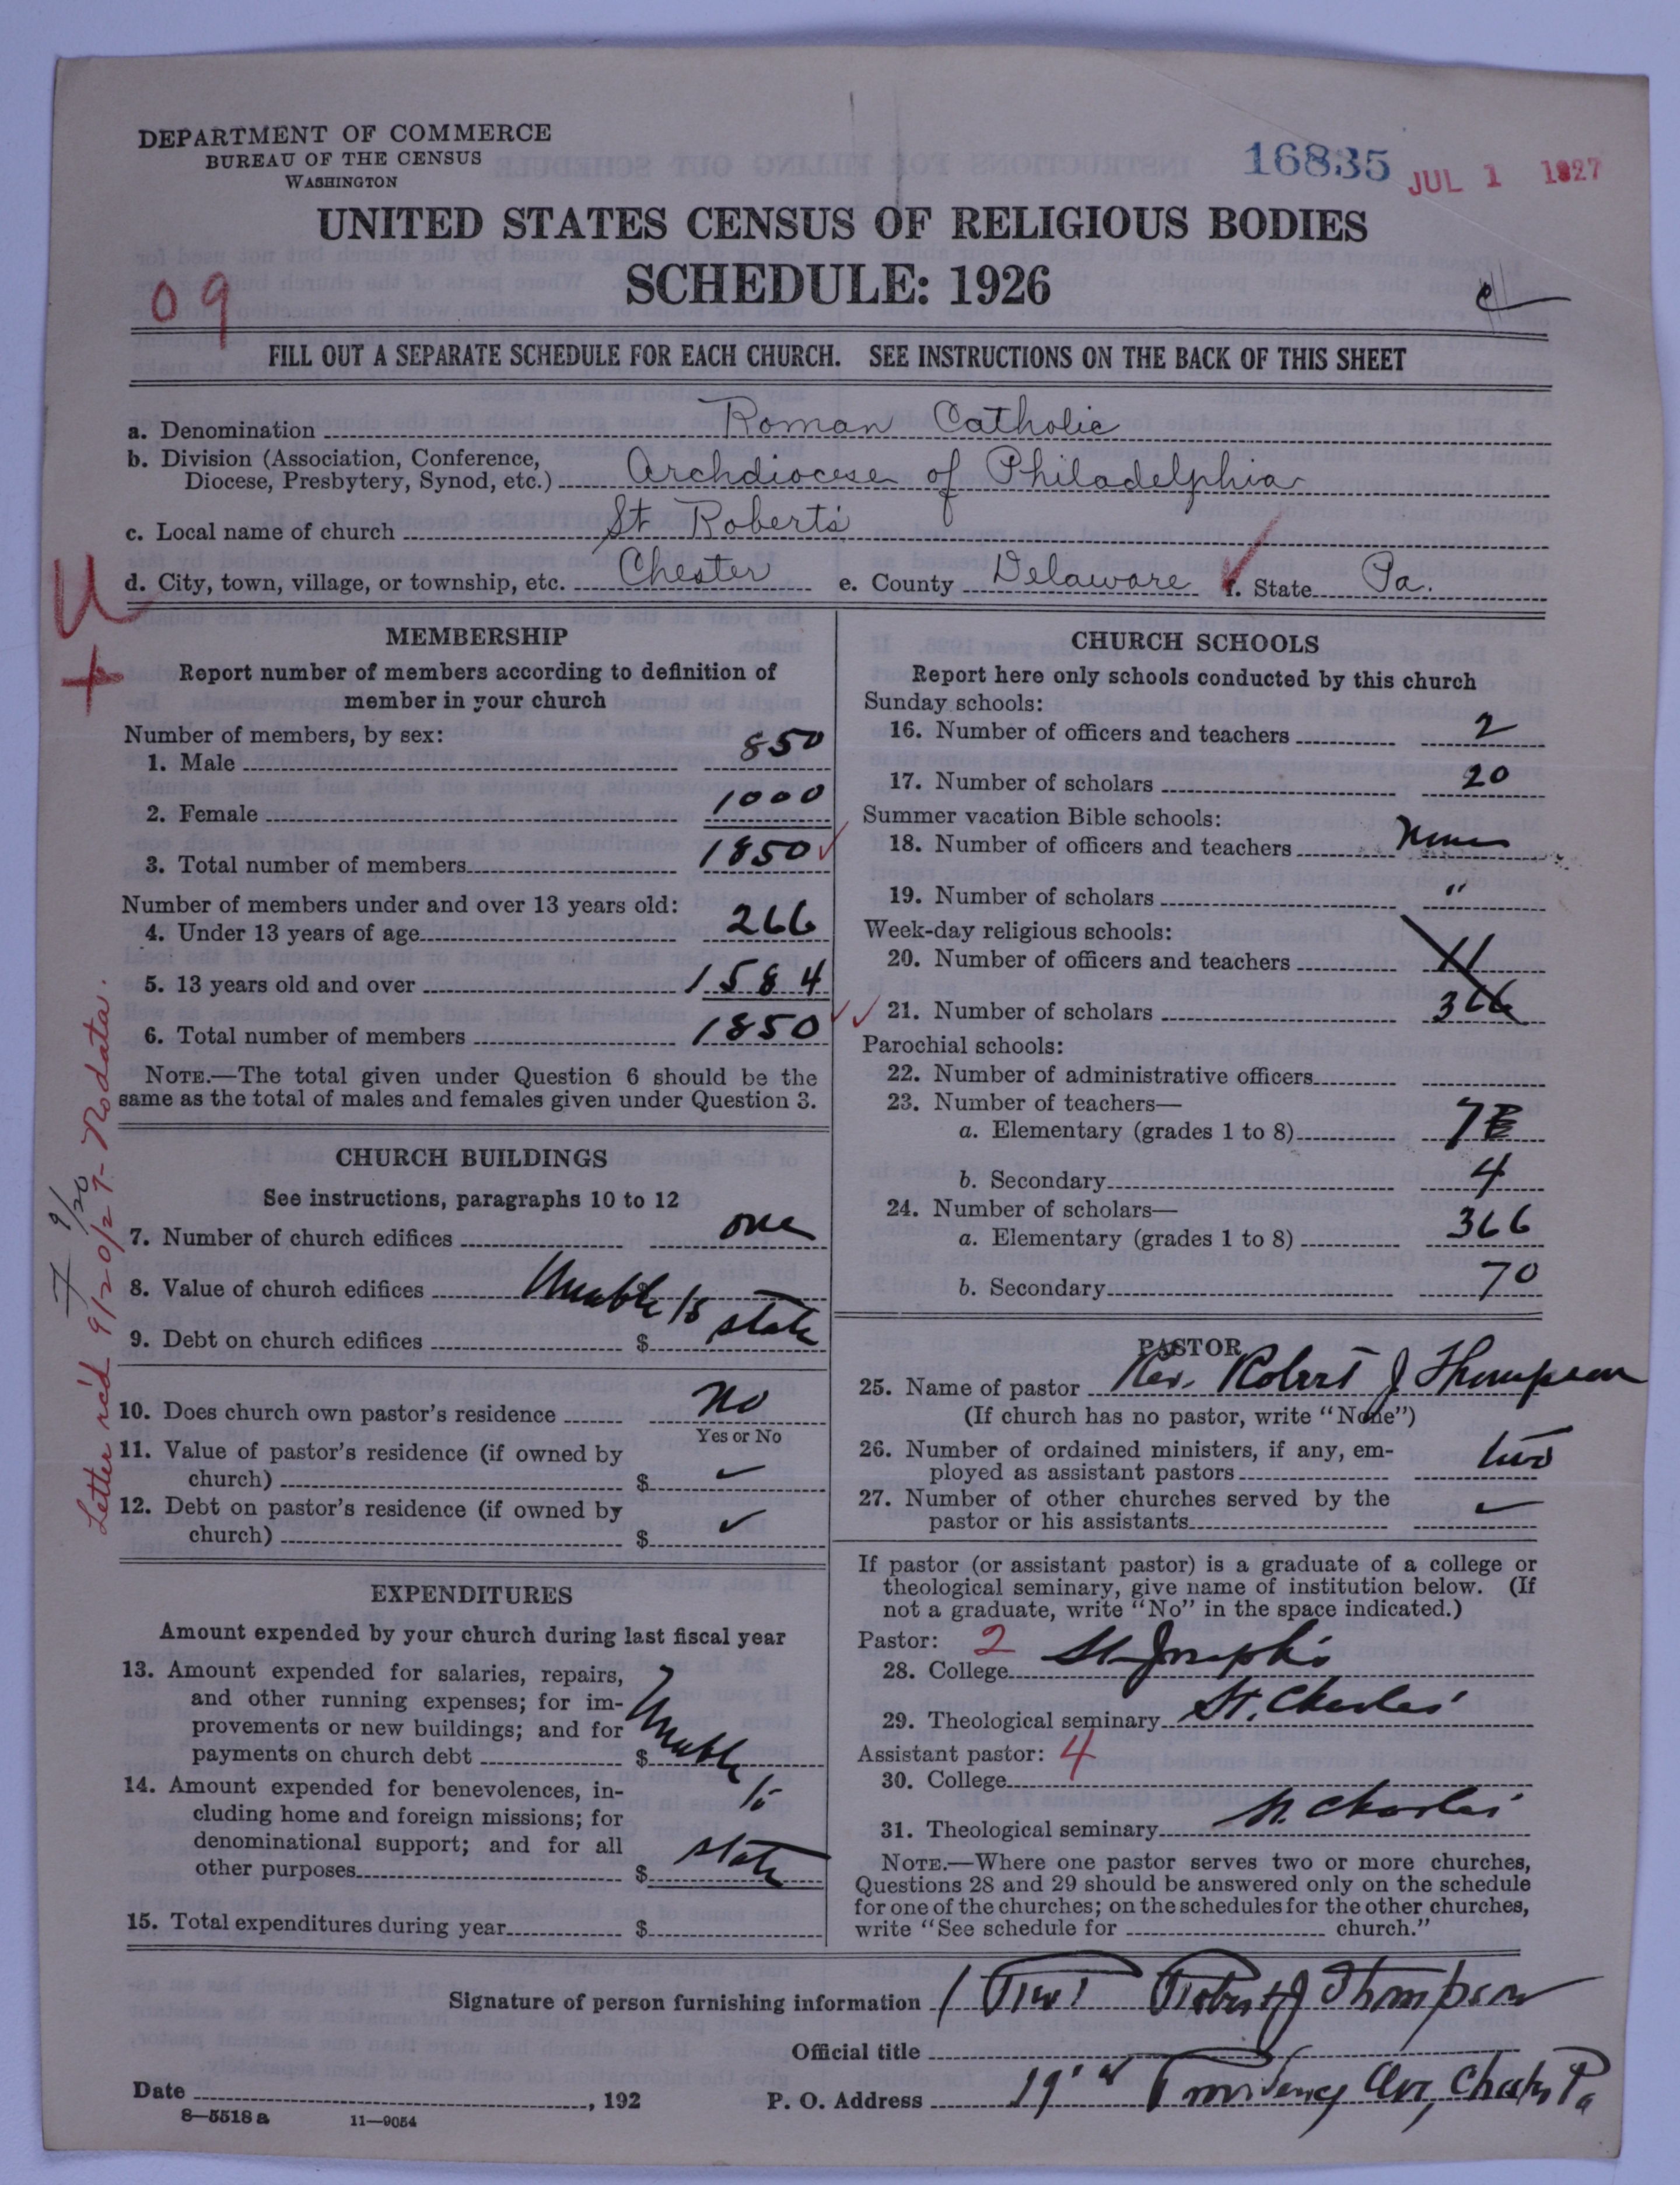 DEPARTMENT OF COMMERCE
BUREAU OF THE CENSUS
WASHINGTON
16835 JUL 1 1927
UNITED STATES CENSUS OF RELIGIOUS BODIES
SCHEDULE: 1926
09
FILL OUT A SEPARATE SCHEDULE FOR EACH CHURCH. SEE INSTRUCTIONS ON THE BACK OF THIS SHEET
a. Denomination Roman Catholic
b. Division (Association, Conference,
Diocese, Presbytery, Synod, etc.) Archdiocese of Philadelphia
c. Local name of church St Robert's
d. City, town, village, or township, etc. Chester e. County Delaware f. State Pa.
U
+
Letter rec'd 9/20/27 - No data.
9/20
MEMBERSHIP
Report number of members according to definition of
member in your church
Number of members, by sex:
1. Male 850
2. Female 1000
3. Total number of members 1850 ✓
Number of members under and over 13 years old:
4. Under 13 years of age 266
5. 13 years old and over 1584
6. Total number of members 1850 ✓
NOTE.—The total given under Question 6 should be the
same as the total of males and females given under Question 3.
CHURCH BUILDINGS
See instructions, paragraphs 10 to 12
7. Number of church edifices one
8. Value of church edifices Unable to
9. Debt on church edifices $ state
10. Does church own pastor's residence No
Yes or No
11. Value of pastor's residence (if owned by
church) $ ✓
12. Debt on pastor's residence (if owned by
church) $ ✓
EXPENDITURES
Amount expended by your church during last fiscal year
13. Amount expended for salaries, repairs,
and other running expenses; for im-
provements or new buildings; and for
payments on church debt $ Unable
14. Amount expended for benevolences, in- to
cluding home and foreign missions; for
denominational support; and for all
other purposes $ state
15. Total expenditures during year $
CHURCH SCHOOLS
Report here only schools conducted by this church
Sunday schools:
16. Number of officers and teachers 2
17. Number of scholars 20
Summer vacation Bible schools:
18. Number of officers and teachers None
19. Number of scholars "
Week-day religious schools:
20. Number of officers and teachers 11
✓ 21. Number of scholars 366
Parochial schools:
22. Number of administrative officers
23. Number of teachers—
a. Elementary (grades 1 to 8) 7
b. Secondary 4
24. Number of scholars—
a. Elementary (grades 1 to 8) 366
b. Secondary 70
PASTOR
25. Name of pastor Rev. Robert J Thompson
(If church has no pastor, write "None")
26. Number of ordained ministers, if any, em-
ployed as assistant pastors two
27. Number of other churches served by the
pastor or his assistants ✓
If pastor (or assistant pastor) is a graduate of a college or
theological seminary, give name of institution below. (If
not a graduate, write "No" in the space indicated.)
Pastor: 2
28. College St Joseph's
29. Theological seminary St. Charles'
Assistant pastor: 4
30. College
31. Theological seminary St. Charles'
NOTE.—Where one pastor serves two or more churches,
Questions 28 and 29 should be answered only on the schedule
for one of the churches; on the schedules for the other churches,
write "See schedule for church."
Signature of person furnishing information Robert J Thompson
Official title
Date , 192 P. O. Address 19 Providence Ave, Chester Pa
8—5518 a 11—9054